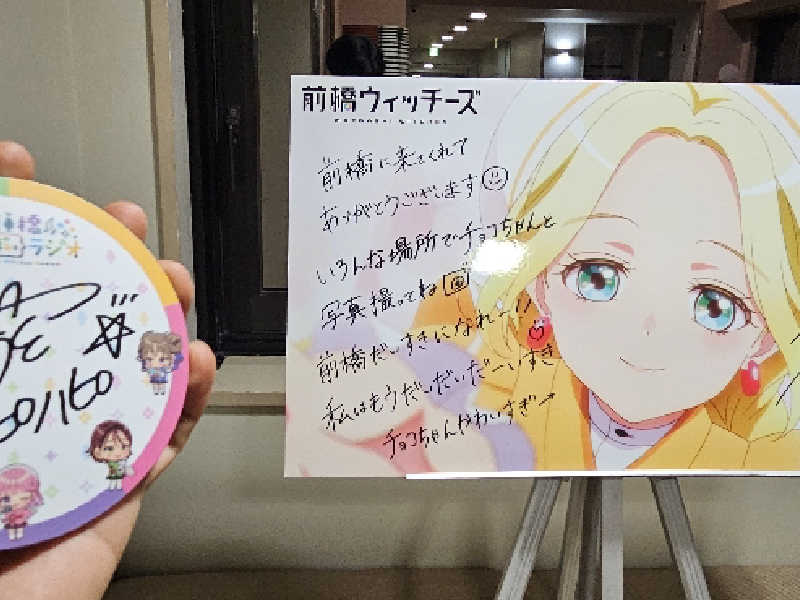 前橋ウィッチーズ
前橋に来てくれて
ありがとうございます
いろんな場所でチョコちゃんと
写真撮ってね
前橋だいすきになれー!!
私はもうだいだいだーいすき
チョコちゃんかわいすぎ→
ラジオ